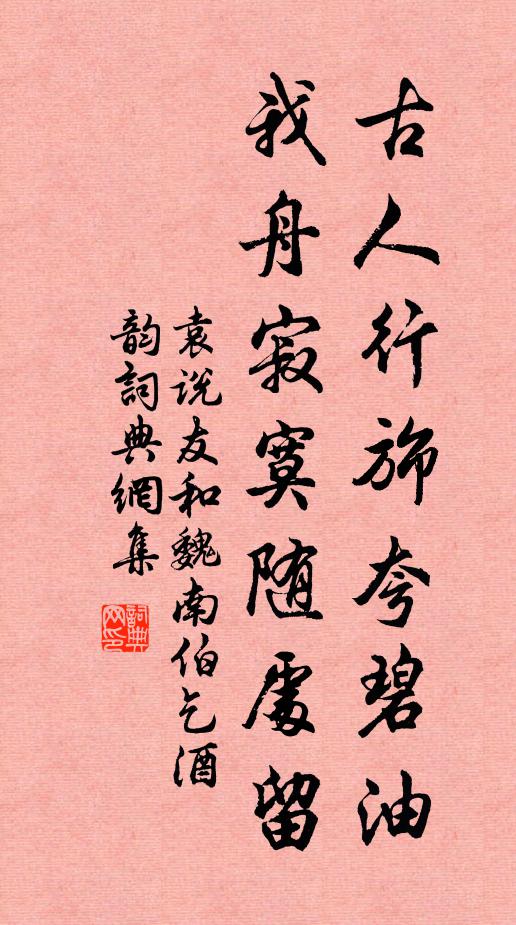 古人行旆夸碧油
我舟寂寞随處留
袁说友和魏南伯乞酒
韵詞典網集
詞典网印